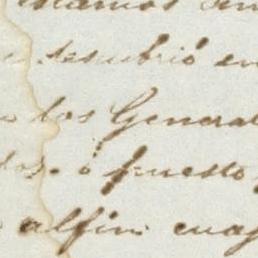 estamos
descubrió en
los General
dos. ó puesto
alfin